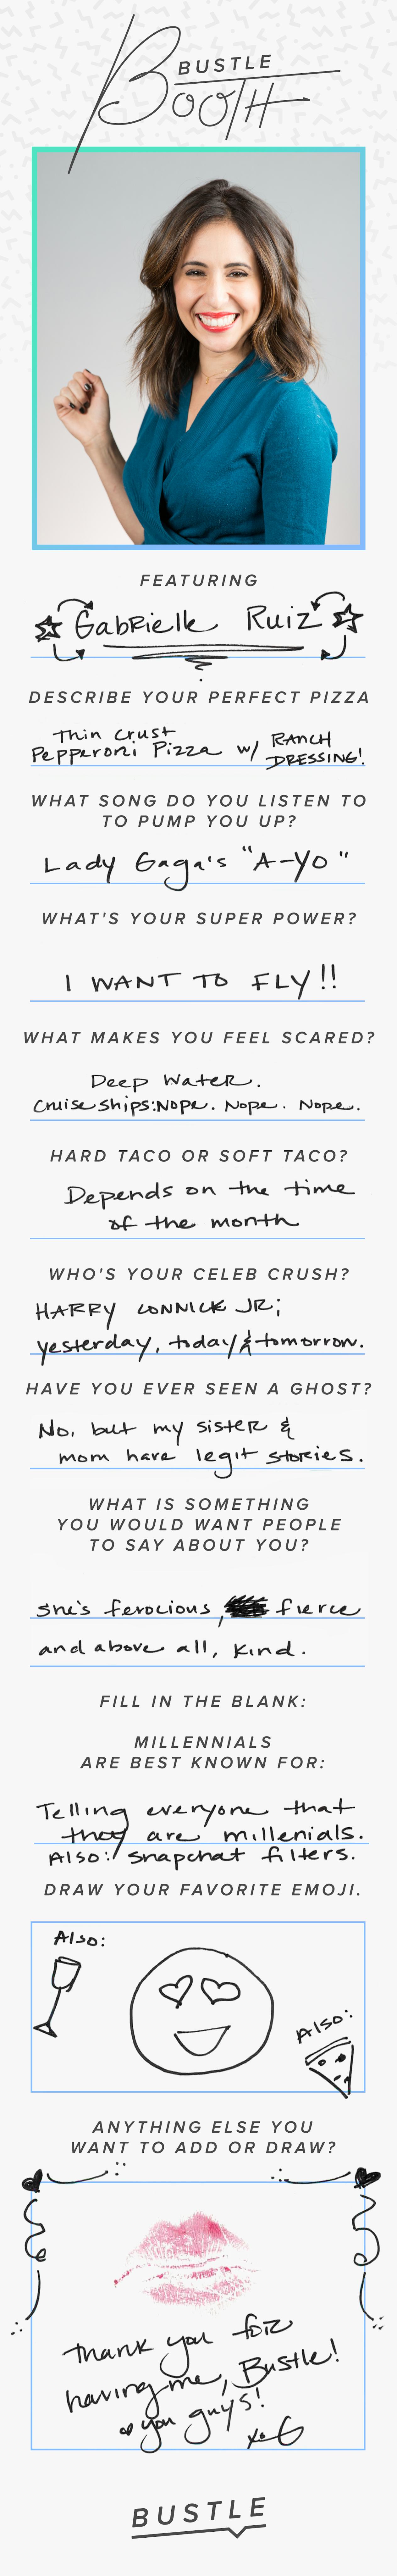 BUSTLE
BOOTH
FEATURING
GabRielle Ruiz
DESCRIBE YOUR PERFECT PIZZA
Thin crust
Pepperoni Pizza w/ RANCH
DRESSING!
WHAT SONG DO YOU LISTEN TO
TO PUMP YOU UP?
Lady Gaga's "A-Yo"
WHAT'S YOUR SUPER POWER?
I WANT TO FLY!!
WHAT MAKES YOU FEEL SCARED?
Deep Water.
Cruise ships: Nope. Nope. Nope.
HARD TACO OR SOFT TACO?
Depends on the time
of the month
WHO'S YOUR CELEB CRUSH?
HARRY CONNICK JR;
yesterday, today & tomorrow.
HAVE YOU EVER SEEN A GHOST?
No, but my sister &
mom have legit stories.
WHAT IS SOMETHING
YOU WOULD WANT PEOPLE
TO SAY ABOUT YOU?
she's ferocious, fierce
and above all, kind.
FILL IN THE BLANK:
MILLENNIALS
ARE BEST KNOWN FOR:
Telling everyone that
they are millenials.
Also: Snapchat filters.
DRAW YOUR FAVORITE EMOJI.
Also:
Also:
ANYTHING ELSE YOU
WANT TO ADD OR DRAW?
Thank you for
having me, Bustle!
you guys!
xo G
BUSTLE